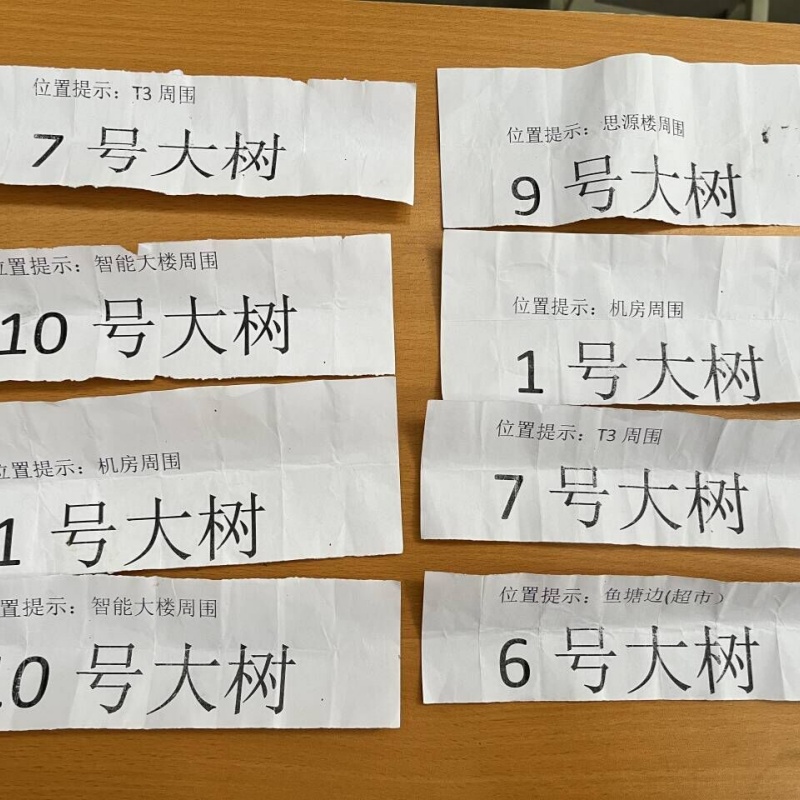 位置提示：T3 周围
7 号大树
位置提示：智能大楼周围
10 号大树
位置提示：机房周围
1 号大树
置提示：智能大楼周围
10 号大树
位置提示：思源楼周围
9 号大树
位置提示：机房周围
1 号大树
位置提示：T3 周围
7 号大树
位置提示：鱼塘边(超市）
6 号大树